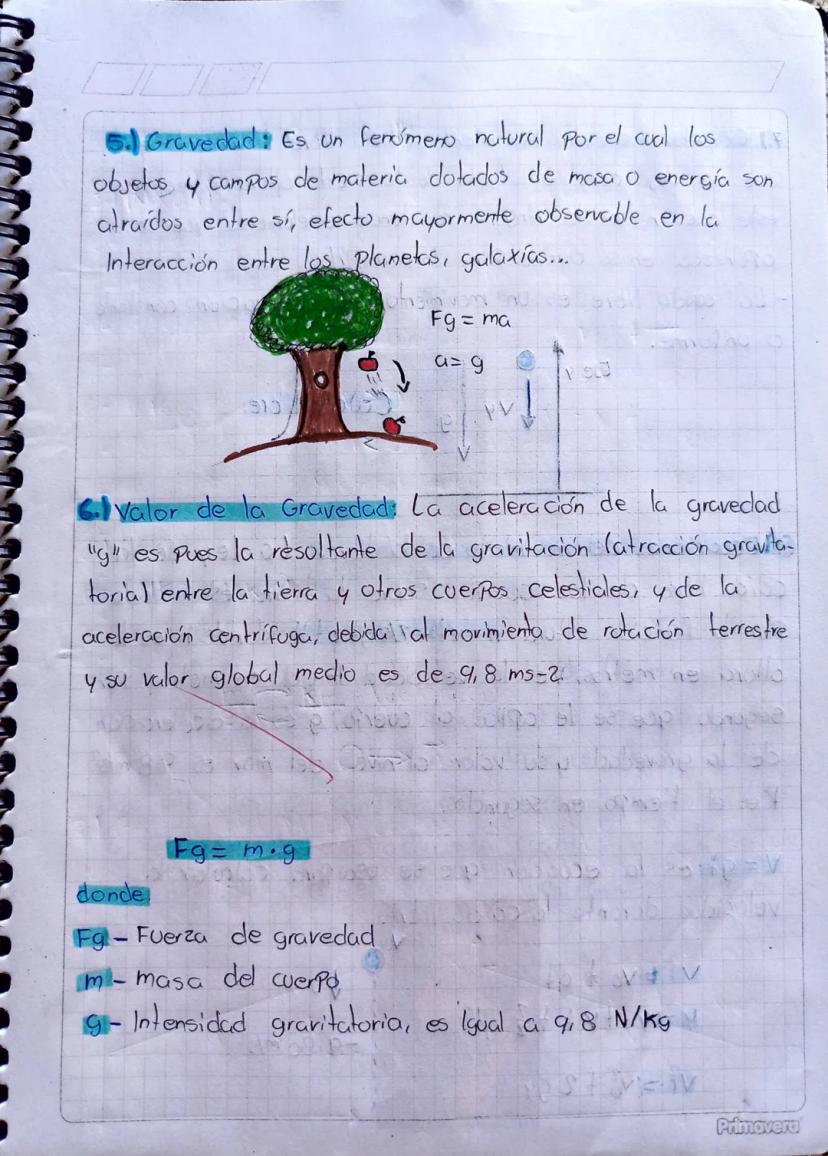 5.) Gravedad: Es un fenómeno natural por el cual los
objetos y campos de materia dotados de masa o energía son
atraídos entre sí, efecto mayormente observable en la
Interacción entre los planetas, galaxías...
Fg = ma
a = g
6.) Valor de la Gravedad: La aceleración de la gravedad
"g" es pues la resultante de la gravitación (atracción gravita-
torial) entre la tierra y otros cuerpos celestiales, y de la
aceleración centrífuga, debida al movimiento de rotación terrestre
y su valor global medio es de 9,8 ms-2.
Fg = m · g
donde
Fg - Fuerza de gravedad
m - masa del cuerpo
g - Intensidad gravitatoria, es Igual a 9,8 N/kg
Primavera